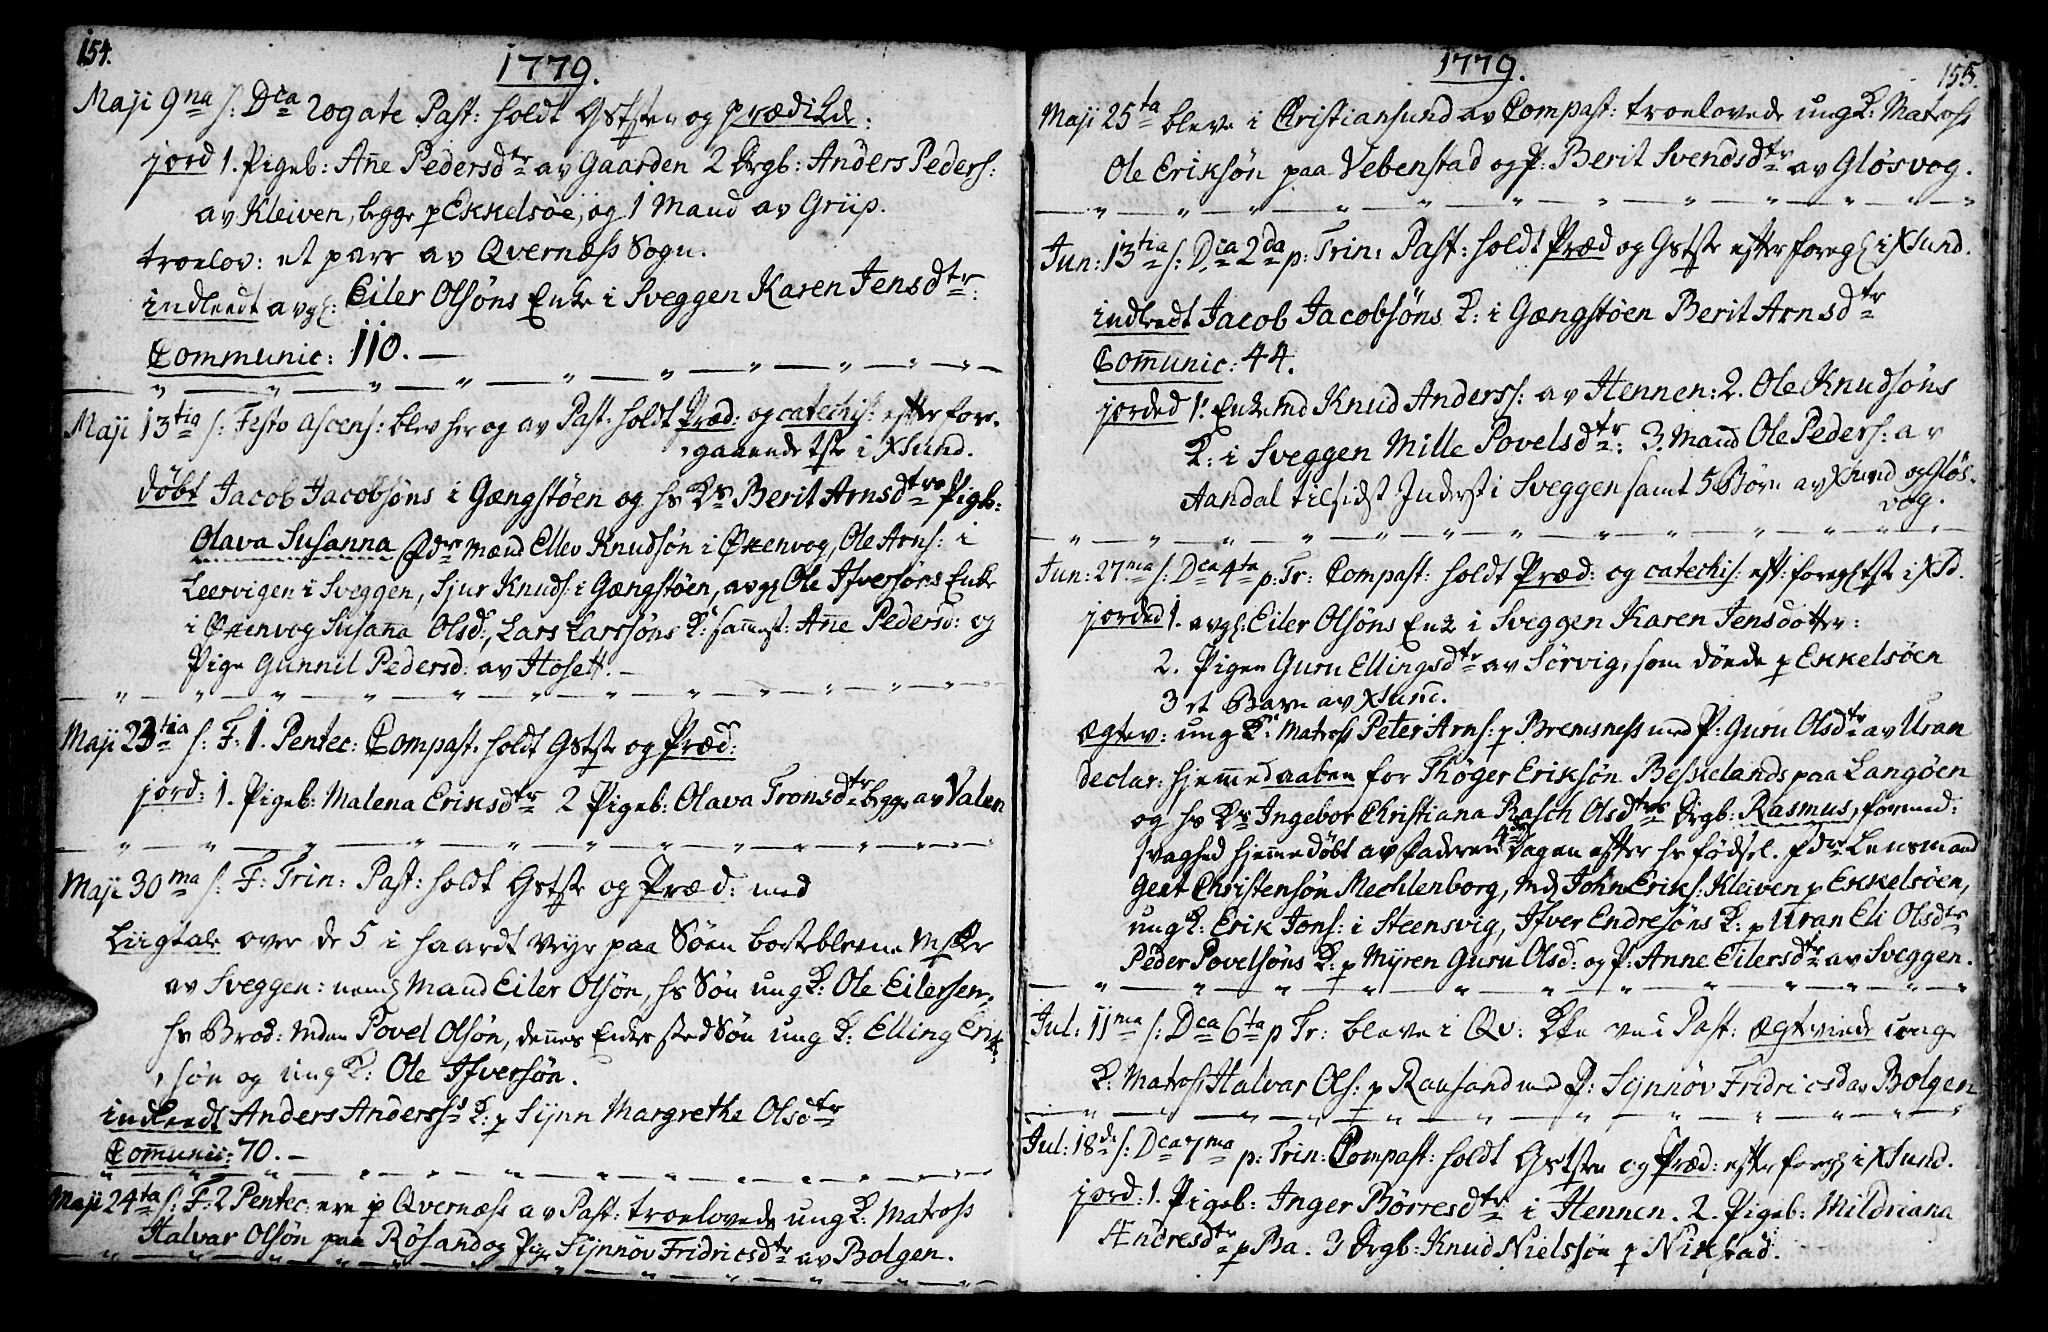 154.
1779.
Maji 9na s: Dca Rogate Past: holdt Gststen og prædikde:
jord 1. Pigeb: Anne Pedersdtr av Gaarden 2 Drgb: Anders Peders:
av Kleiven, begge p Ekkelsøe, og 1 Mand av Griip.
troelov: et parr av Qvernæss Sogn.
indleedt avgl: Eiler Olsøns Enke i Sveggen Karen Jensdtr:
Communic: 110. —
Maji 13tia s: Festo Ascens: blev her og av Past: holdt Præd: og catechis: efter fore-
gaaende tste i Xsund.
døbt Jacob Jacobsøns i Gængstøen og hs Ks Berit Arnsdtrs Pigb:
Olava Susanna Fdre Mænd Ellev Knudsøn i Ørenvog, Ole Arns: i
Leervigen i Sveggen, Sjur Knuds: i Gængstøen, avgl Ole Ifversøns Enke
i Ørenvog Susanna Olsd:, Lars Larssøns K: samst: Anne Pedersd: og
Pige Gunnil Pedersd: av Hosett. —
Maji 23tia s: F: 1. Pentec: Compast: holdt Gstste og Præd:
jord: 1. Pigeb: Malena Eriksdtr 2 Pigeb: Olava Tronsdtr begge av Valen
Maji 30ma s: F: Trin: Past: holdt Gstste og Præd: med
Liigtale over de 5 i haardt Veyr paa Søen bortblevne Msker
av Sveggen: neml Mand Eiler Olsøn, hs Søn ung K: Ole Eilersen,
hs Brod: Mden Povel Olsøn, dennes Enkes sted Søn ung K: Elling Erik-
søn og ung K: Ole Ifversøn.
indleedt Anders Anderss: K: p Sÿnn Margrethe Olsdtr
Communic: 70. —
Maji 24ta s: F: 2 Pentec: ere p Qvernæss av Past: troelovede ung K: Matross
Halvar Olsøn paa Røsand og Pige Sÿnnøv Fridricsdtr av Bolgen.
1779.
155.
Maji 25ta bleve i Christiansund av Compast: troelovede ung K: Matross
Ole Eriksøn paa Vebenstad og P: Berit Svendsdtr av Gløsvog.
Jun: 13tia s: Dca 2da p: Trin: Past: holdt Præd og Gstste efter foregl i Xsund.
indleedt Jacob Jacobsøns K: i Gængstøen Berit Arnsdtr
Communic: 44.
jorded 1. Enkemd Knud Anderss: av Hennen: 2. Ole Knudsøns
K: i Sveggen Mille Povelsdtr: 3. Mand Ole Peders: av
Aandal tilsidst Inderst i Sveggen samt 5 Børn av Xsund og Gløs-
vog.
Jun: 27ma s: Dca 4ta p: Tr: Compast: holdt Præd: og catechis: eft: foregl tste i XSd.
jorded 1. avgl: Eiler Olsøns Enke i Sveggen Karen Jensdotter:
2. Pigen Guru Ellingsdtr av Sørvig, som døede p Ekkelsøen
3 et Barn av Xsund.
Ægtev: ung K: Matross Peter Arns: p Bremsness med P: Guru Olsdtr av Uran
declar: hjemmedaaben for Thøger Eriksøn Beskelands paa Langøen
og hs Ks Ingebor Christiana Rasch Olsdtrs Drgb: Rasmus, formed:
svaghed hjemmedøbt av Faderen 4de Dagen efter hs fødsel. Fdre Lensmand
Geet Christensøn Mechlenborg, Md John Eriks: Kleiven p Ekkelsøen,
ung K: Erik Jons: i Steensvig, Ifver Endresøns K: p Uran Eli Olsdtr
Peder Povelsøns K: p Myren Guru Olsd: og P: Anne Eilersdtr av Sveggen.
Jul: 11ma s: Dca 6ta p Tr: bleve i Qv: Kke ved Past: Ægteviede unge
K: Matross Halvar Ols: p Rausand med P: Sÿnnøv Fridricsd av Bolgen
Jul: 18de s: Dca 7ma p: Trin: Compast: holdt Gststen og Præd: efter foregl i Xsund.
jord: 1. Pigeb: Inger Børresdtr i Hennen. 2. Pigeb: Mildriana
Ændresdtr p Ba. 3 Drgb: Knud Nielssøn p Nikstad.